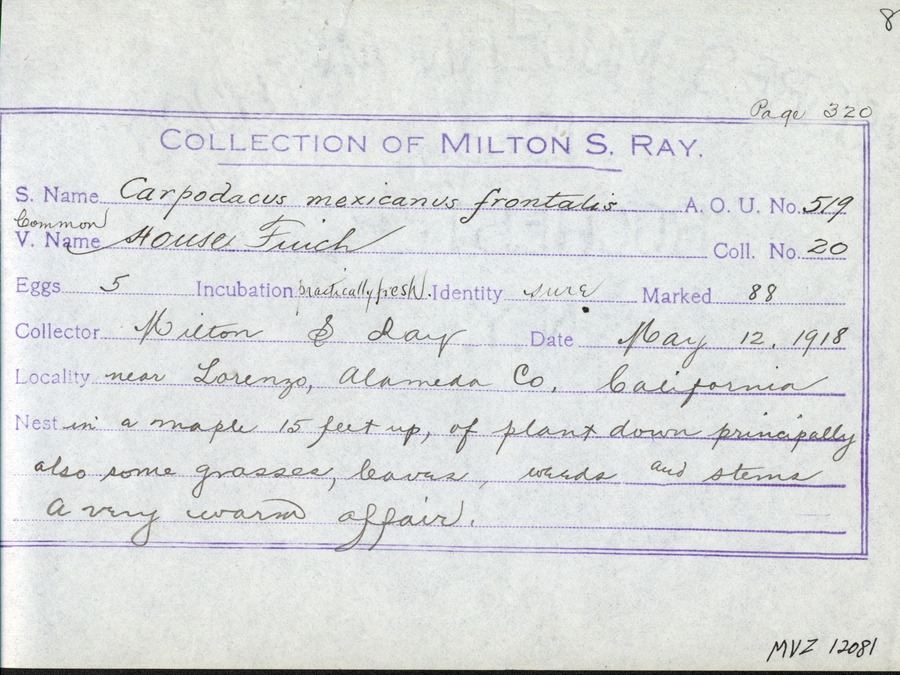 8
Page 320
COLLECTION OF MILTON S. RAY.
S. Name Carpodacus mexicanus frontalis A. O. U. No. 519
Common
V. Name House Finch Coll. No. 20
Eggs 5 Incubation practically fresh. Identity sure Marked 88
Collector Milton S Ray Date May 12, 1918
Locality near Lorenzo, Alameda Co. California
Nest in a maple 15 feet up, of plant down principally
also some grasses, leaves, weeds and stems
a very warm affair.
MVZ 12081